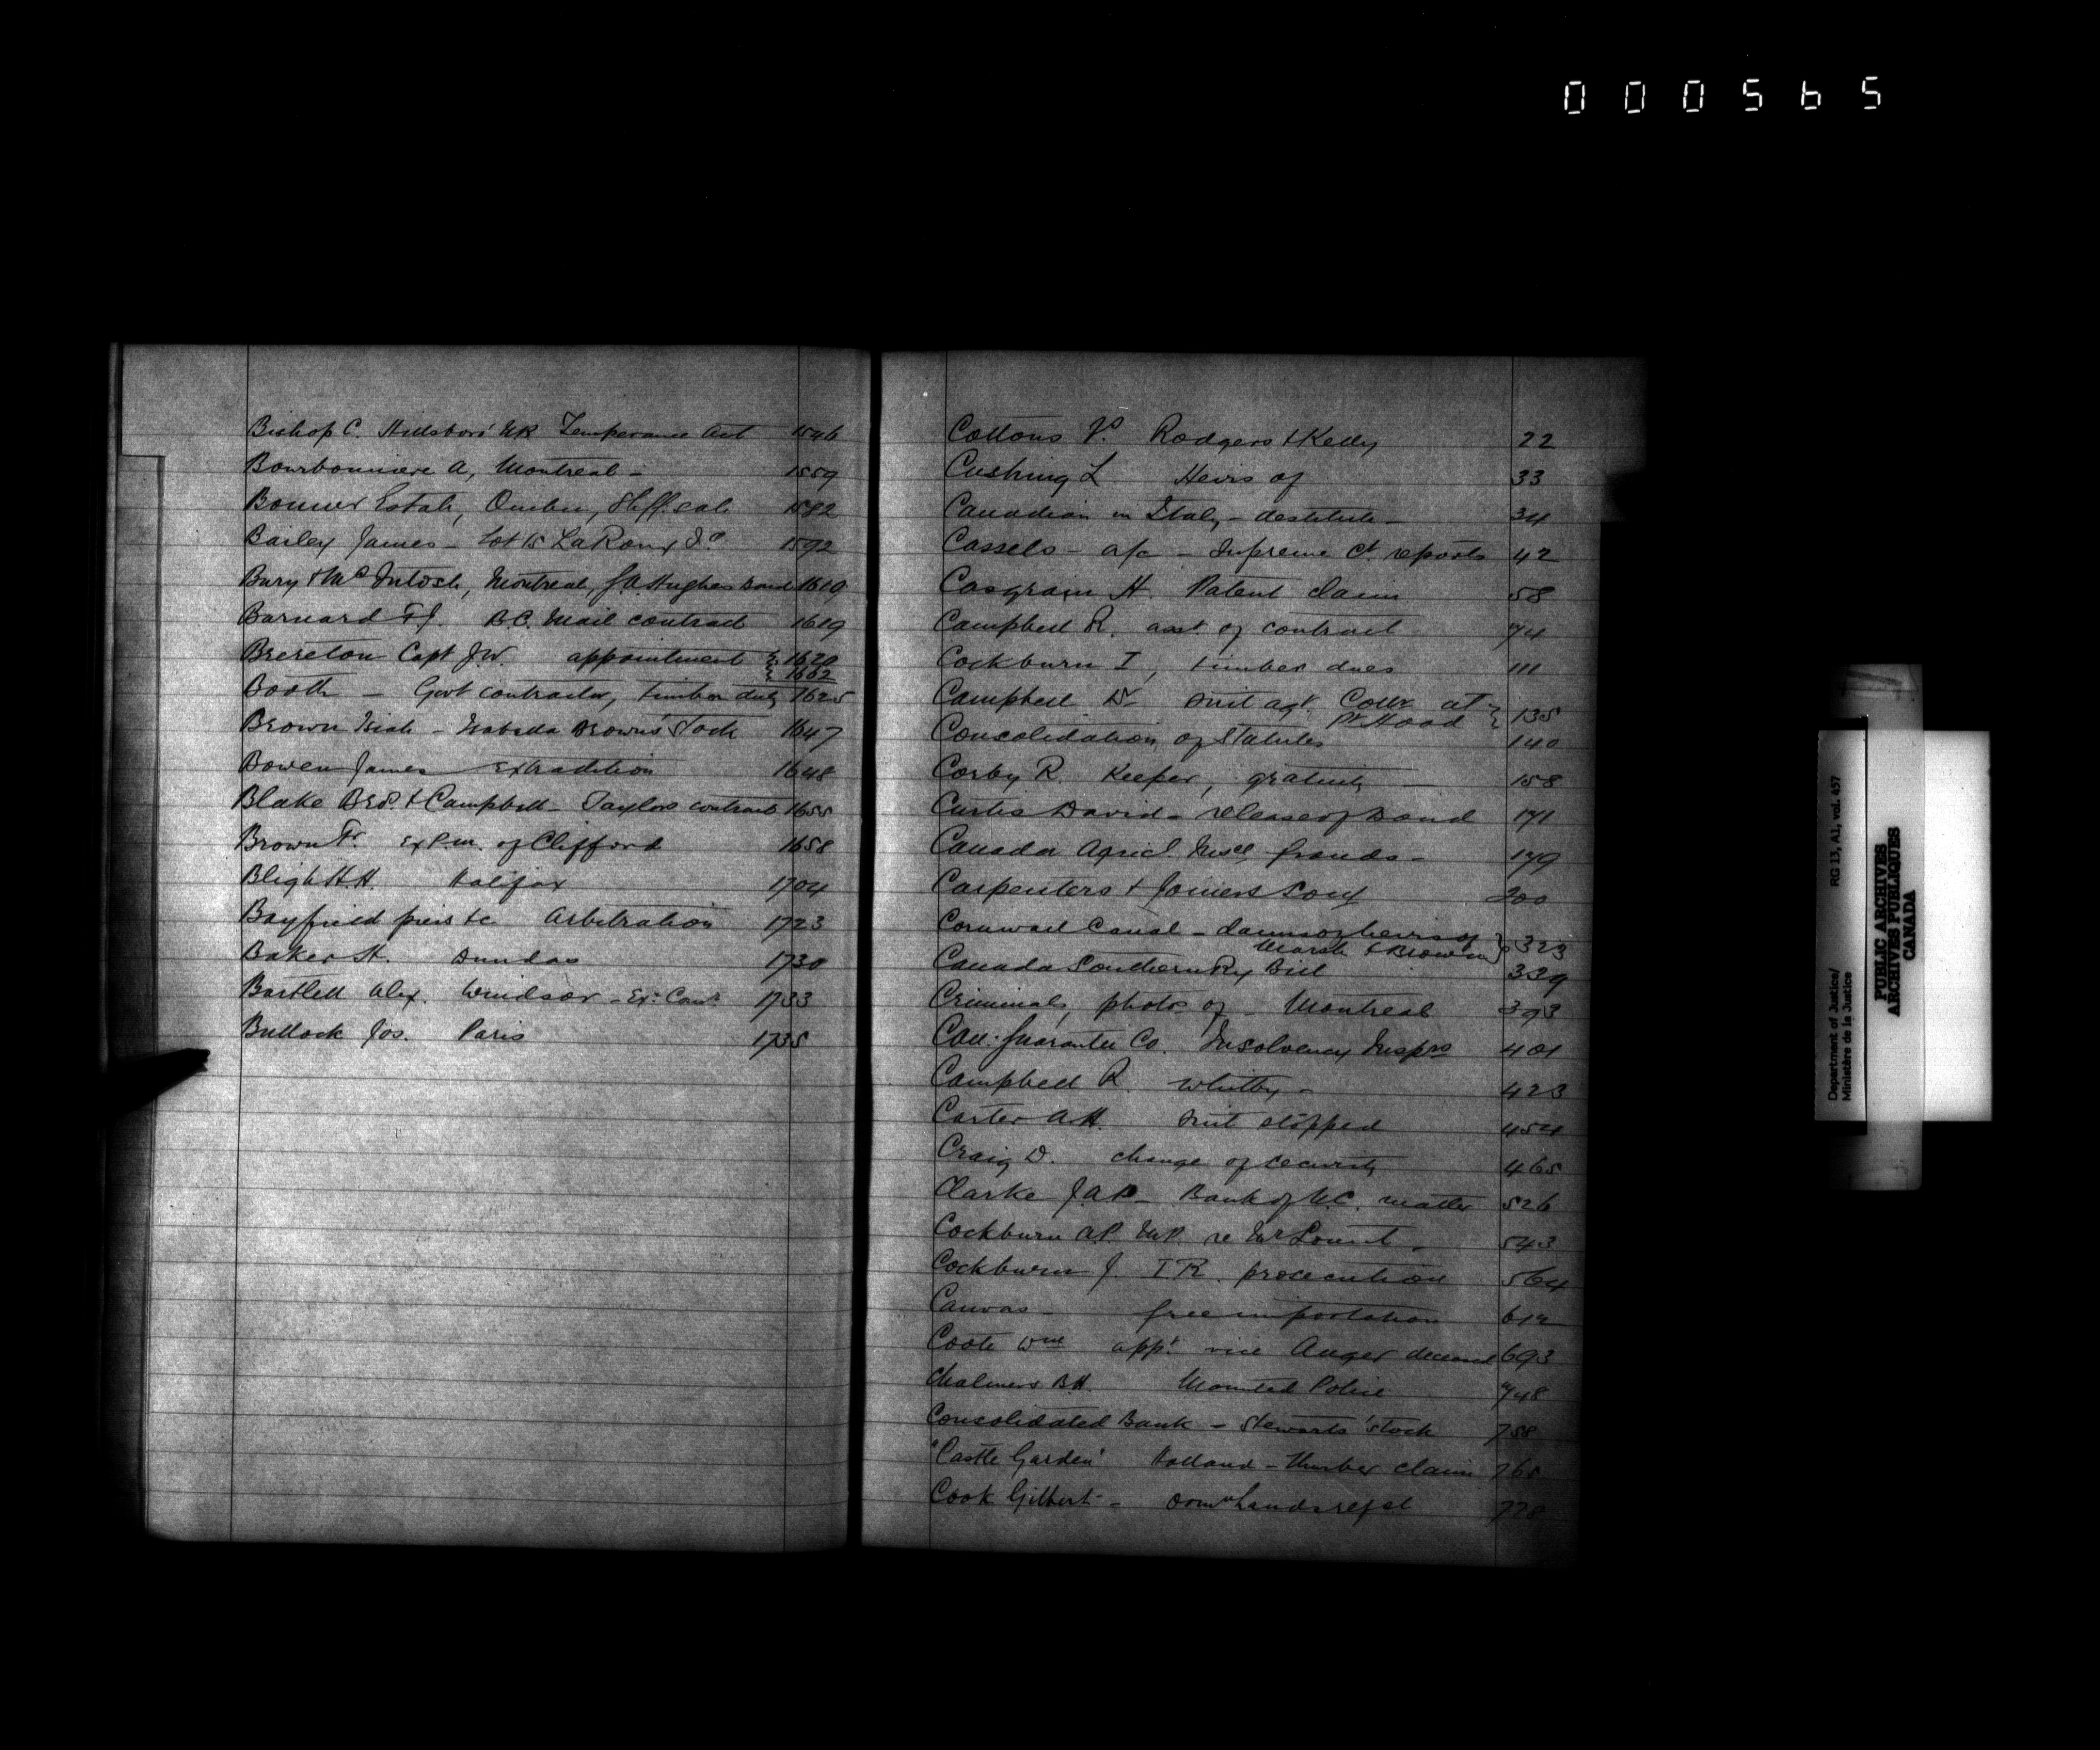 000565
Bishop C. Hillsboro' Temperance Act 1546
Bourbonniere A, Montreal - 1559
Bonner Estate, Quebec, Shff. sale 1582
Bailey James - Lot 15 LaRonx 1592
Bury & McIntosh, Montreal, Hughes bond 1610
Barnard F.J. B.C. Mail contract 1619
Brereton Capt J.W. appointment { 1620
{ 1662
Booth - Govt contractor, timber duty 1625
Brown - Isabella Brown's Stock 1647
Bowen James Extradition 1648
Blake Bros. & Campbell - Taylors contract 1655
Brown Fr. Ex P.m. of Clifford 1658
Bligh H.H. Halifax 1704
Bayfield piers &c Arbitration 1723
Baker H. Dundas 1730
Bartlett Alex. Windsor - 1733
Bullock Jos. Paris 1735
Cottons Vs Rodgers & Kelly 22
Cushing L Heirs of 33
Canadian in Italy - destitute - 34
Cassels - a/c - Supreme Ct. reports 42
Casgrain H. Patent claim 58
Campbell R. asst. of contract 74
Cockburn I, timber dues 111
Campbell Dr suit agt. Collr at } 135
Pt Hood
Consolidation of Statutes 140
Corby R. Keeper, gratuity 158
Curtis David - release of Bond 171
Canada Agricl. Insce, frauds - 179
Carpenters & Joiners Socy 200
Cornwall Canal - claims of heirs of } 323
Marsh & Brown
Canada Southern Ry Bill 339
Criminals, photos of - Montreal 393
Can: Guarantee Co. Insolvency Insprs 401
Campbell R. Whitby - 423
Carter A.H. suit stopped 454
Craig D. change of security 465
Clarke J.A.P. - Bank of U.C. matter 526
Cockburn A.P. M.P. re Mr Lount - 543
Cockburn J. I R. prosecution 564
Canvas - free importation 612
Coote Wm appt. vice Auger deceased 693
Chalmers B.H. Mounted Police 748
Consolidated Bank - Stewarts' stock 758
"Castle Garden" Holland - Thurber claim 765
Cook Gilbert - Domn Lands 778
Department of Justice/
Ministère de la Justice
RG 13, A1, vol. 457
PUBLIC ARCHIVES
ARCHIVES PUBLIQUES
CANADA